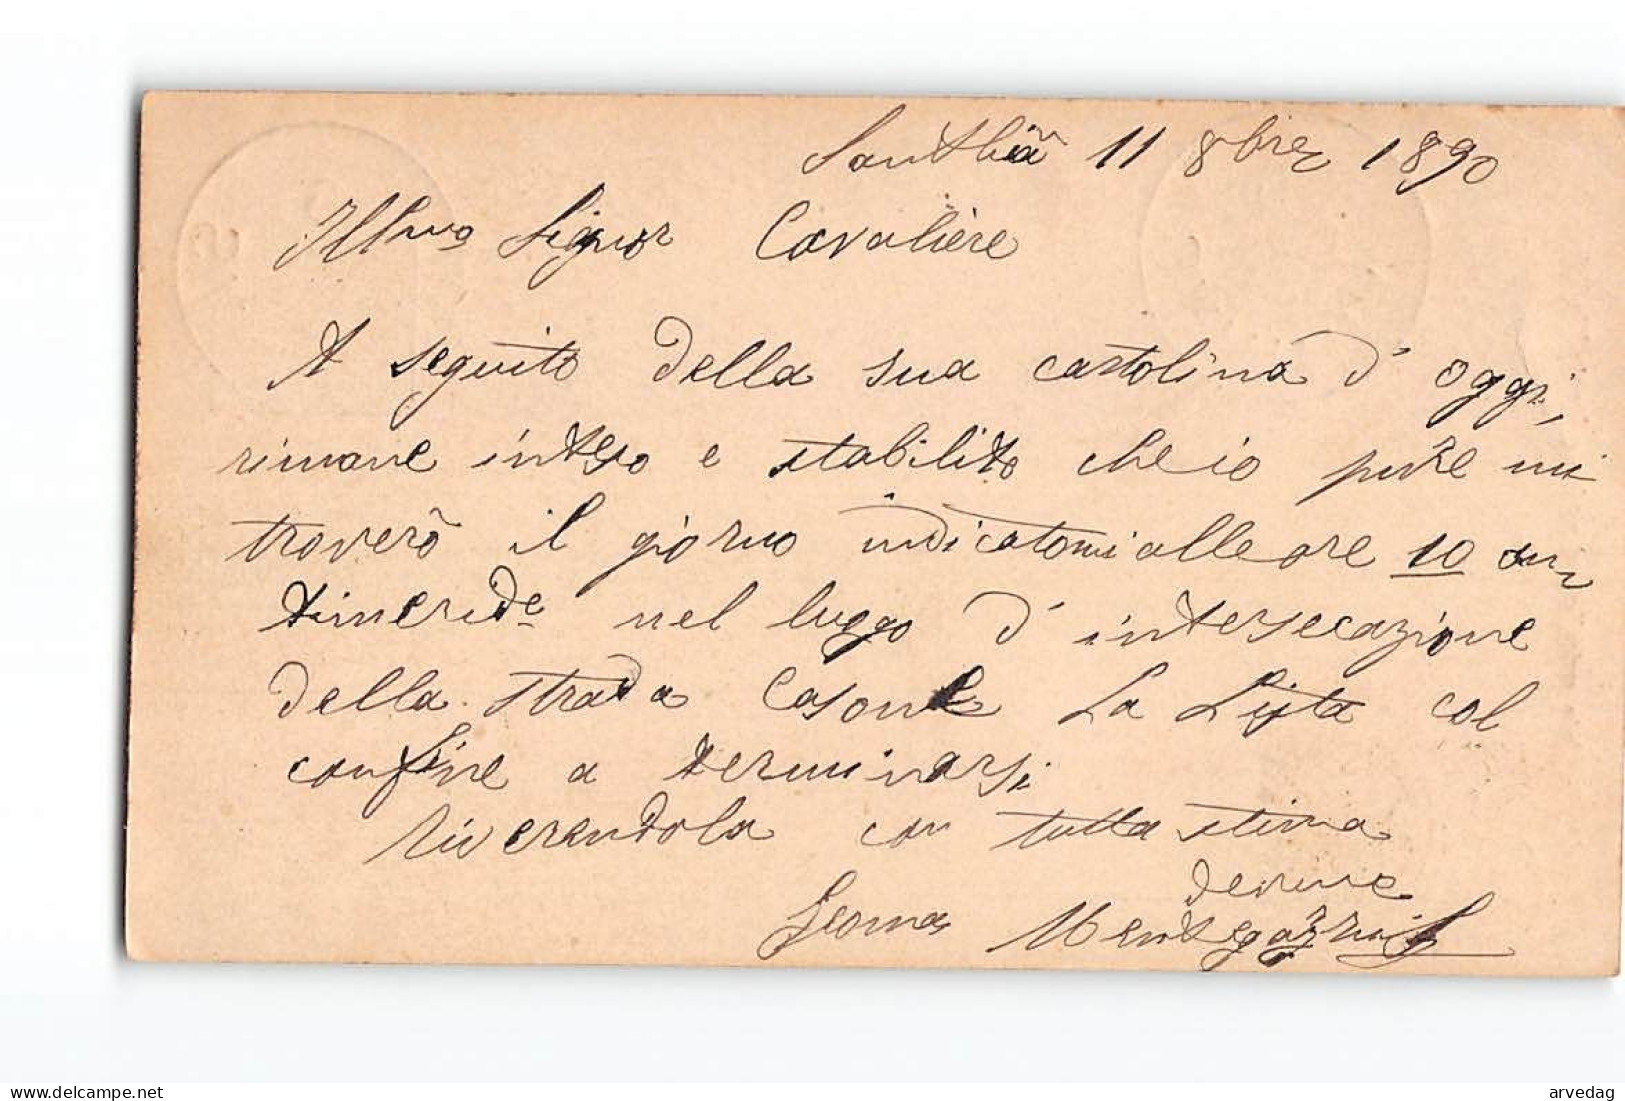 Santhià 11 8bre 1890
Illmo Signor Cavalière
A seguito della sua cartolina d'oggi,
rimane inteso e stabilito che io pure mi
troverò il giorno indicatomi alle ore 10 an
timeride nel luogo d'intersecazione
della strada Casone La Lista col
confine a terminarsi
Riverendola con tutta stima
devmo
Geoma
delcampe.net
arvedag